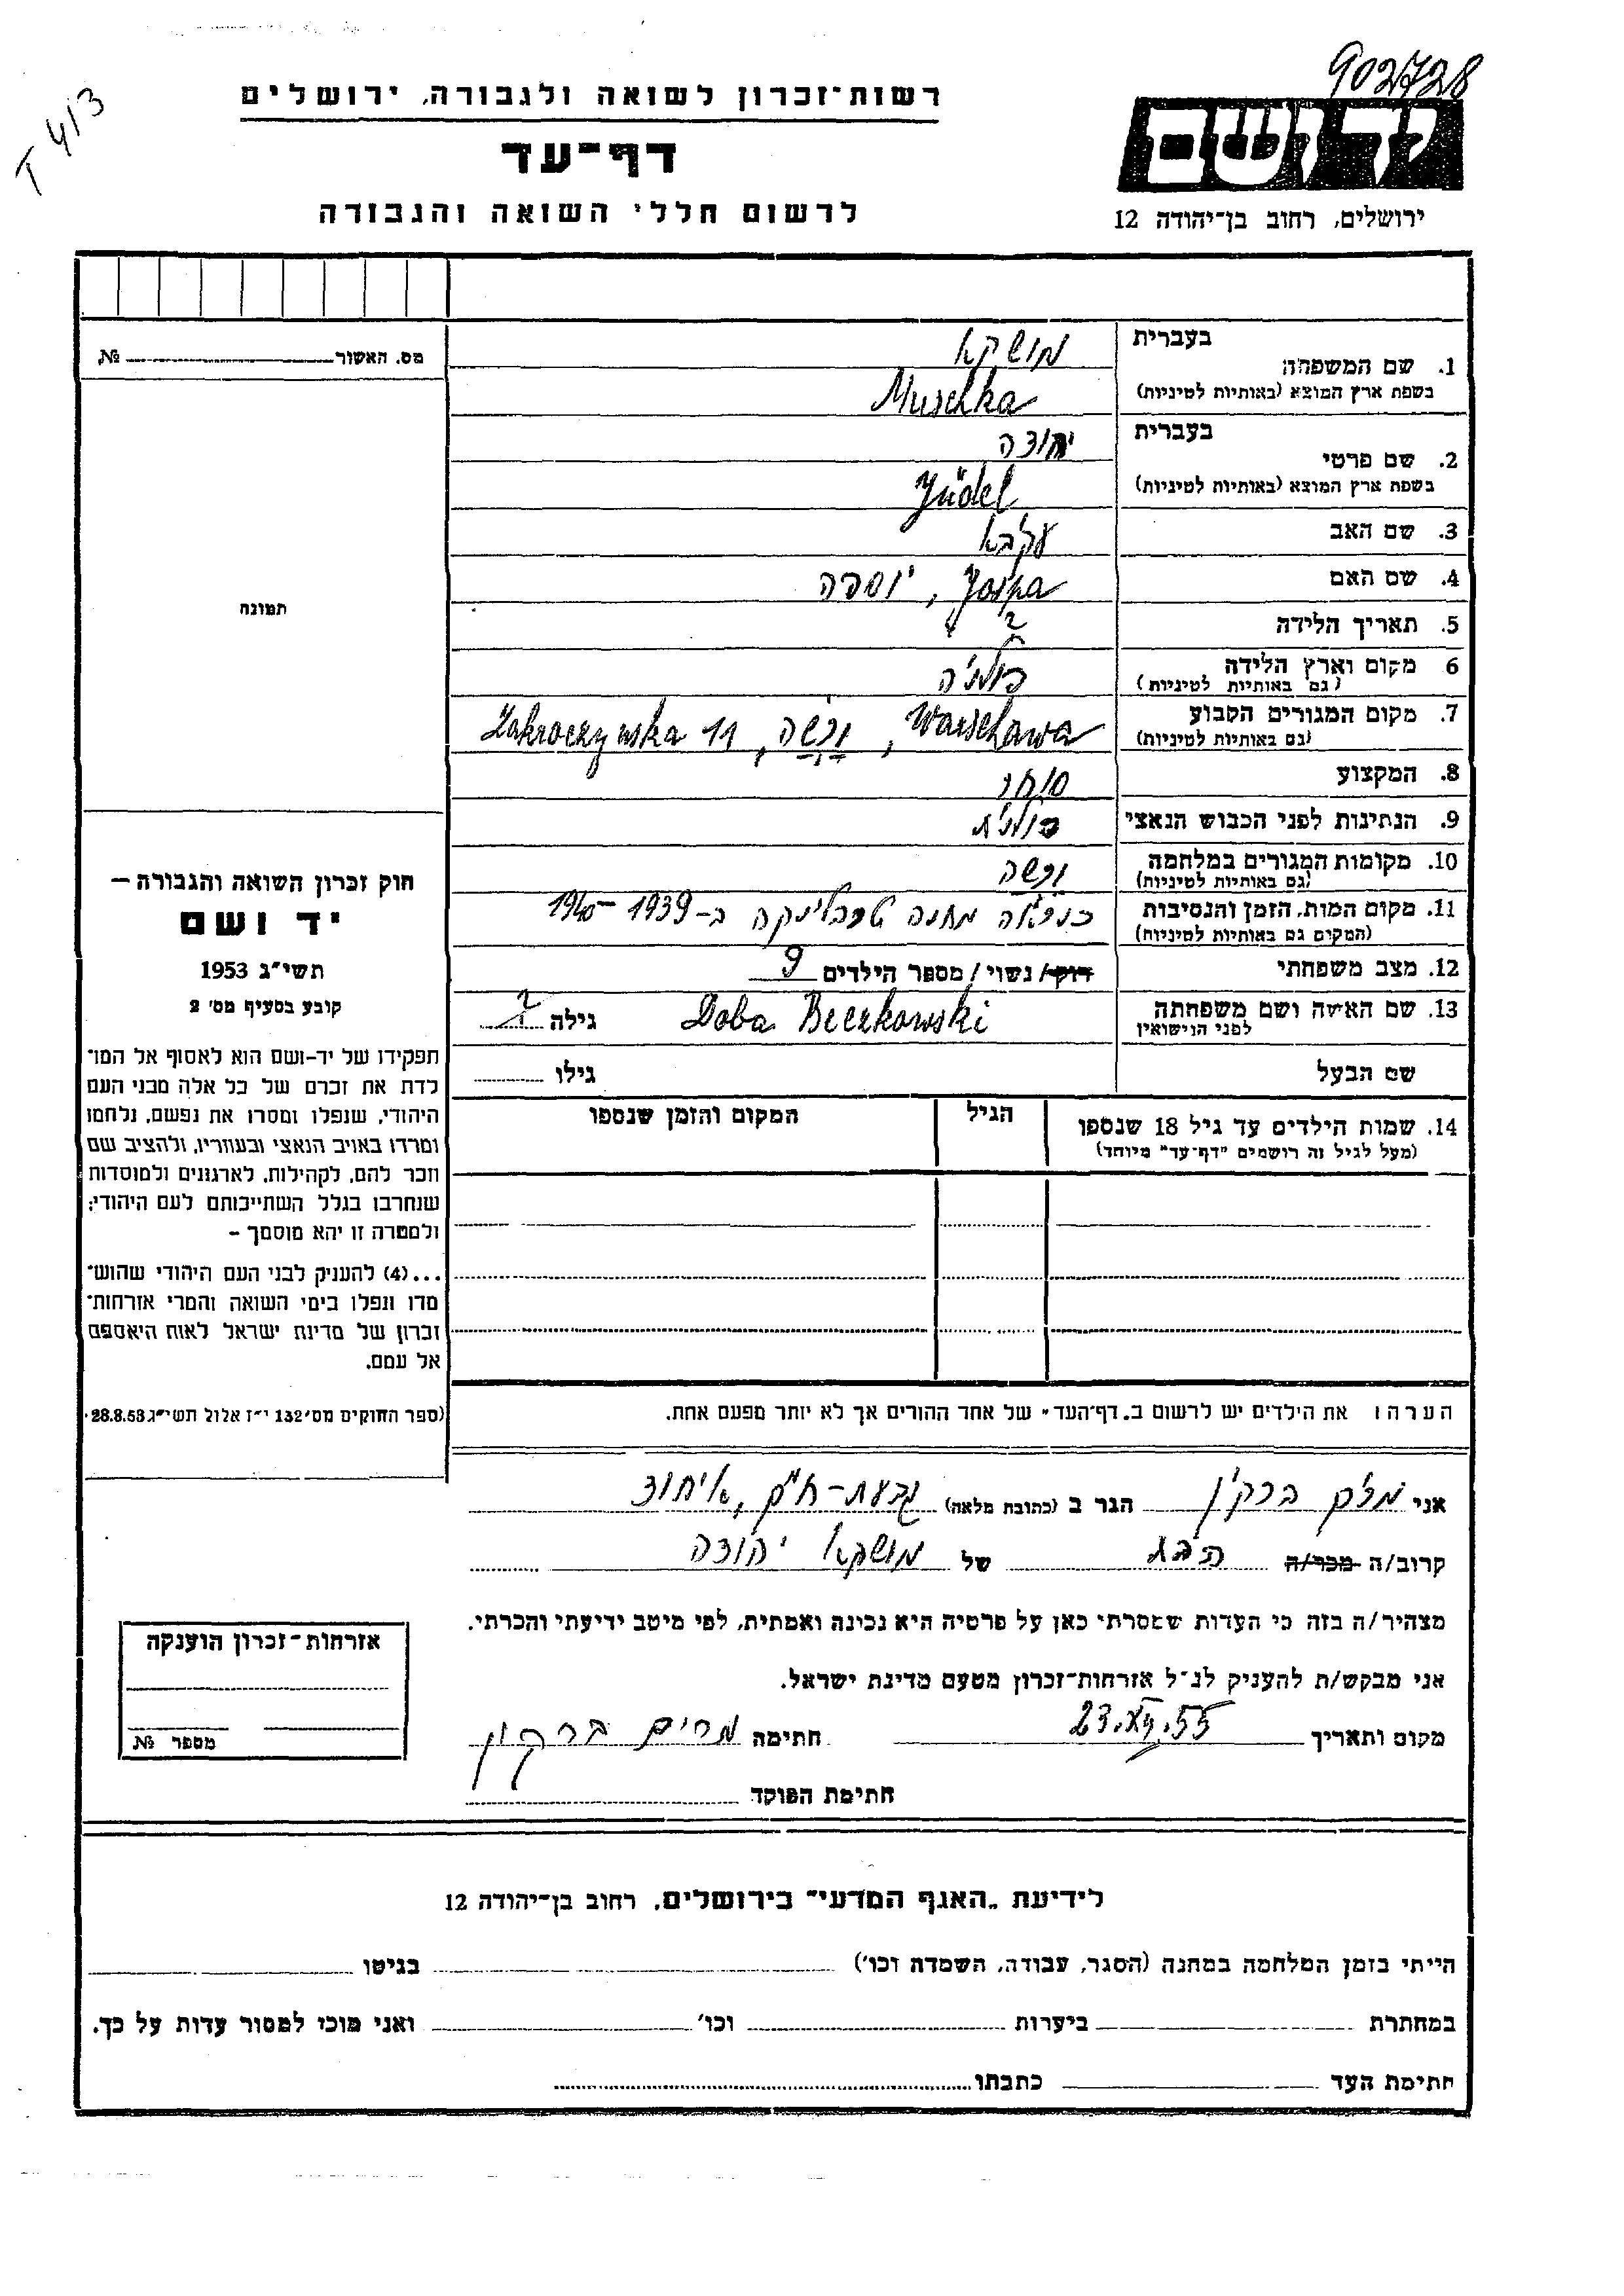 902728
T 413
רשות־זכרון לשואה ולגבורה, ירושלים
דף־עד
לרשום חללי השואה והגבורה
יד ושם
ירושלים, רחוב בן־יהודה 12
מס. האשור № 
תמונה
בעברית מושקא
1. שם המשפחה
בשפת ארץ המוצא (באותיות לטיניות) Muschka
בעברית יהודה
2. שם פרטי
בשפת ארץ המוצא (באותיות לטיניות) Jüdel
3. שם האב עקיבא
4. שם האם Jospa, יוספה
5. תאריך הלידה ?
6 מקום וארץ הלידה פולניה
(גם באותיות לטיניות)
7. מקום המגורים הקבוע Warschawa, ורשה, Zakroczymska 11
(גם באותיות לטיניות)
8. המקצוע סוחר
9. הנתינות לפני הכבוש הנאצי פולנית
10. מקומות המגורים במלחמה ורשה
(גם באותיות לטיניות)
11. מקום המות, הזמן והנסיבות כנראה מחנה טרבלינקה ב–1939–1940
(המקום גם באותיות לטיניות)
12. מצב משפחתי רוק/ נשוי / מספר הילדים 9
13. שם האשה ושם משפחתה Doba Beczkowski גילה ?
לפני הנישואין
שם הבעל גילו
14. שמות הילדים עד גיל 18 שנספו הגיל המקום והזמן שנספו
(מעל לגיל זה רושמים "דף־עד" מיוחד)
הערה: את הילדים יש לרשום ב„דף־העד" של אחד ההורים אך לא יותר מפעם אחת.
חוק זכרון השואה והגבורה –
יד ושם
תשי"ג 1953
קובע בסעיף מס' 2
תפקידו של יד-ושם הוא לאסוף אל המו־
לדת את זכרם של כל אלה מבני העם
היהודי, שנפלו ומסרו את נפשם, נלחמו
ומרדו באויב הנאצי ובעוזריו, ולהציב שם
וזכר להם, לקהילות, לארגונים ולמוסדות
שנחרבו בגלל השתייכותם לעם היהודי;
ולמטרה זו יהא מוסמך –
...(4) להעניק לבני העם היהודי שהוש־
מדו ונפלו בימי השואה והמרי אזרחות־
זכרון של מדינת ישראל לאות היאספם
אל עמם.
(ספר החוקים מס' 132 י"ז אלול תשי"ג 28.8.53)
אני מרים ברקין הגר ב (כתובת מלאה) גבעת-חיים, איחוד
קרוב/ה מכר/ה הבת של מושקא יהודה
מצהיר/ה בזה כי העדות שמסרתי כאן על פרטיה היא נכונה ואמתית, לפי מיטב ידיעתי והכרתי.
אני מבקש/ת להעניק לנ"ל אזרחות־זכרון מטעם מדינת ישראל.
מקום ותאריך 23.XII.55 חתימה מרים ברקין
חתימת הפוקד
אזרחות־זכרון הוענקה
מספר №
לידיעת „האגף המדעי" בירושלים, רחוב בן־יהודה 12
הייתי בזמן המלחמה במחנה (הסגר, עבודה, השמדה וכו') בגיטו
במחתרת ביערות וכו' ואני מוכן למסור עדות על כך.
חתימת העד כתבתו